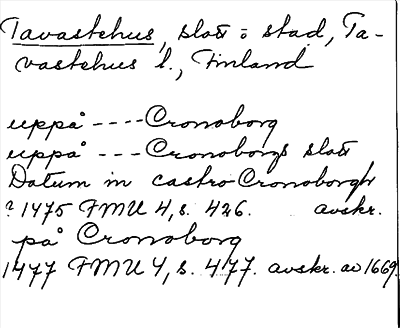 Tavastehus, slott o stad, Ta-
vastehus l., Finland
uppå ---- Cronoborg
uppå --- Cronoborgs slott
Datum in castro Cronoborgh
? 1475 FMU 4, s. 426. avskr.
på Cronoborg
1477 FMU 4, s. 477. avskr. av 1669.